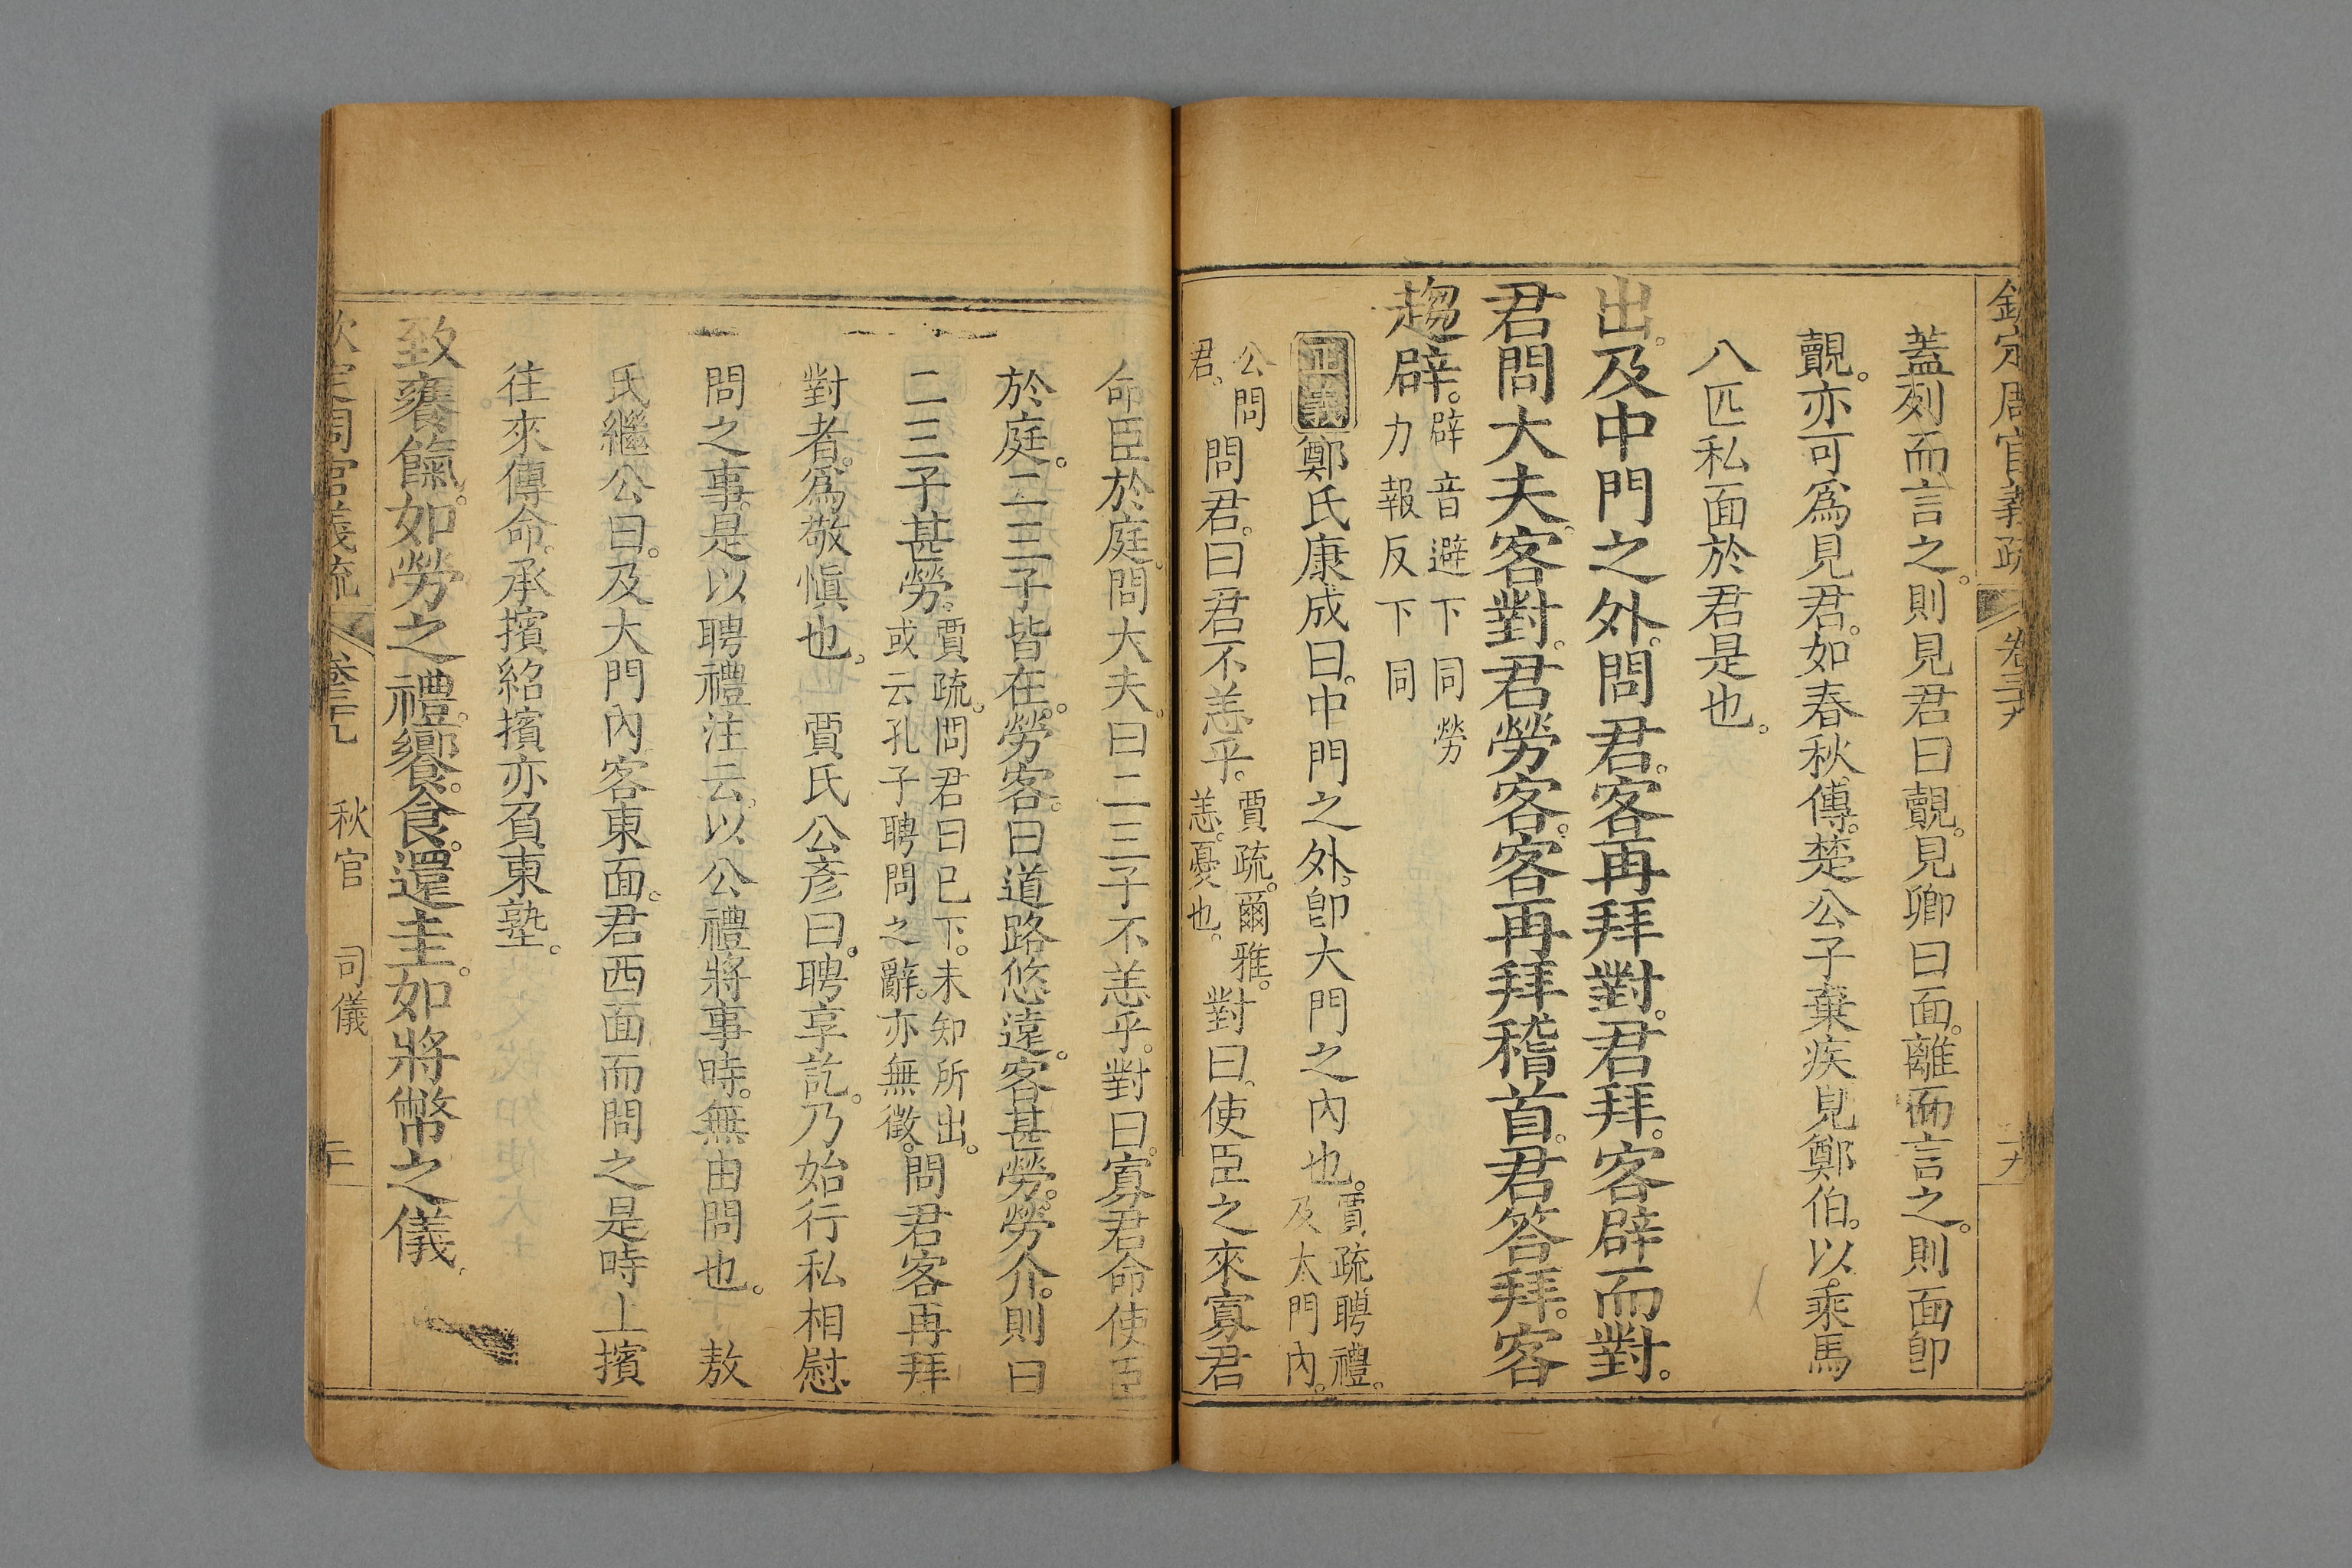 欽定周官義疏 卷三十九 二十九
蓋刻而言之。則見君曰覿。見卿曰面。離而言之。則面卽
覿。亦可爲見君。如春秋傳。楚公子棄疾見鄭伯。以乘馬
八匹私面於君是也。
出。及中門之外。問君。客再拜對。君拜。客辟而對。
君問大夫。客對。君勞客。客再拜稽首。君答拜。客
趨辟。辟音避下同勞
力報反下同
正義 鄭氏康成曰。中門之外。卽大門之內也。賈疏聘禮。
及大門內。
公問
君。
問君。曰君不恙乎。賈疏。爾雅。
恙。憂也。
對曰。使臣之來寡君
命臣於庭。問大夫。曰二三子不恙乎。對曰。寡君命使臣
於庭。二三子皆在。勞客。曰道路悠遠。客甚勞。勞介。則曰
二三子甚勞。賈疏。問君曰已下。未知所出。
或云孔子聘問之辭。亦無徵。
問君客再拜
對者。爲敬愼也。 賈氏公彥曰。聘享訖。乃始行私相慰
問之事。是以聘禮注云。以公禮將事時。無由問也。 敖
氏繼公曰。及大門內。客東面。君西面而問之。是時上擯
往來傳命。承擯紹擯亦負東塾。
致饔餼。如勞之禮。饗。食。還圭。如將幣之儀。
欽定周官義疏 卷三十九 秋官 司儀 三十